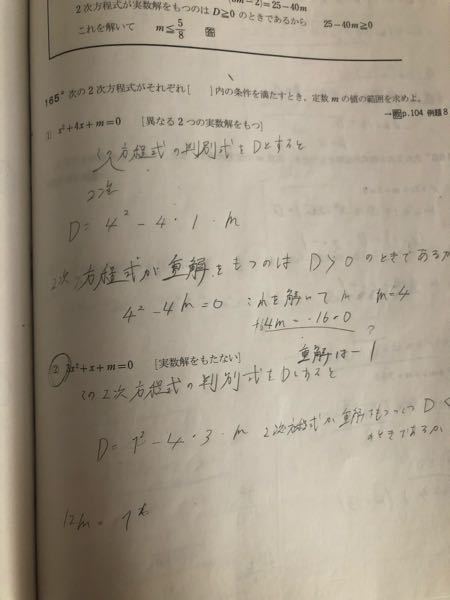 2次方程式が実数解をもつのは D≧0 のときであるから 25-40m≧0
これを解いて m≦5/8 答
165* 次の2次方程式がそれぞれ[ ]内の条件を満たすとき,定数 m の値の範囲を求めよ。
→図p.104 例題8
(1) x²+4x+m=0 [異なる2つの実数解をもつ]
方程式の判別式をDとすると
2次
D= 4² - 4・1・m
2次方程式が重解をもつのは D>0 のときであるか
4²-4m=0 これを解いて m m=4
4m=-16=0
?
重解は-1
(2) 3x²+x+m=0 [実数解をもたない]
この2次方程式の判別式をDとすると
D= 1²-4・3・m 2次方程式が重解をもつ D<
のときであるか
12m = 1